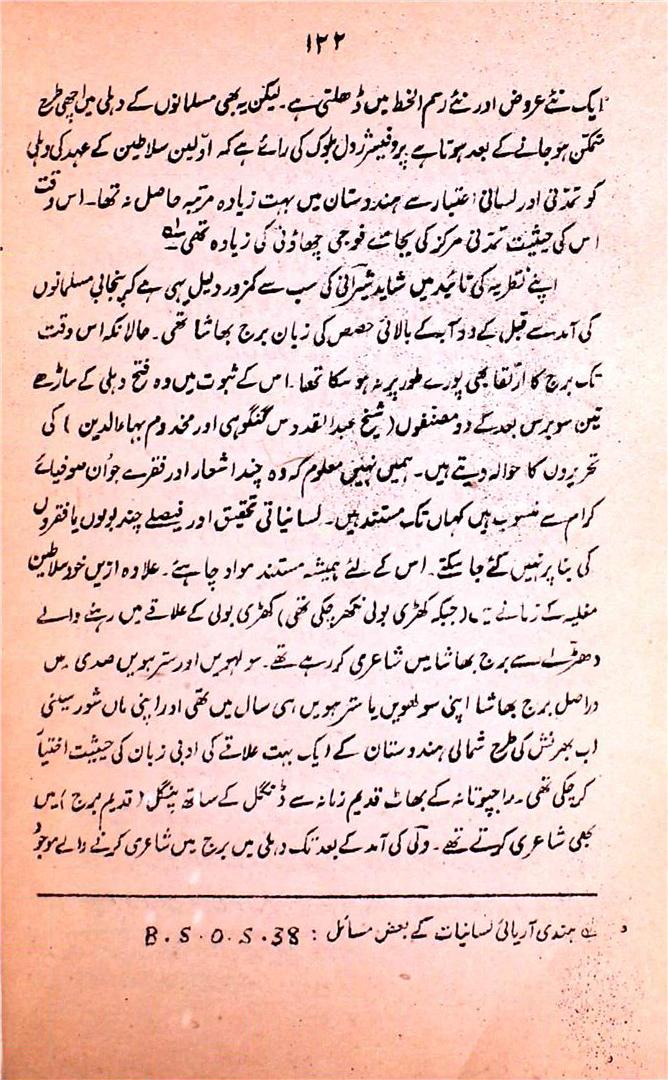 ۱۲۲
ایک نئے عروض اور نئے رسم الخط میں ڈھلتی ہے۔ لیکن یہ بھی مسلمانوں کے دہلی میں اچھی طرح
متمکن ہو جانے کے بعد ہوتا ہے پروفیسر ژول بلوک کی رائے ہے کہ اوّلین سلاطین کے عہد کی دہلی
کو تمدّنی اور لسانی اعتبار سے ہندوستان میں بہت زیادہ مرتبہ حاصل نہ تھا۔ اس وقت
اس کی حیثیت تمدّنی مرکز کی بجائے فوجی چھاؤنی کی زیادہ تھی۔
اپنے نظریہ کی تائید میں شاید شیرانی کی سب سے کمزور دلیل یہی ہے کہ پنجابی مسلمانوں
کی آمد سے قبل کے دوآبے کے بالائی حصص کی زبان برج بھاشا تھی۔ حالانکہ اس وقت
تک برج کا ارتقا بھی پورے طور پر نہ ہو سکا تھا۔ اس کے ثبوت میں وہ فتح دہلی کے ساڑھے
تین سو برس بعد کے دو مصنفوں (شیخ عبدالقدوس گنگوہی اور مخدوم بہاءالدین) کی
تحریروں کا حوالہ دیتے ہیں۔ ہمیں نہیں معلوم کہ وہ چند اشعار اور فقرے جو اُن صوفیائے
کرام سے منسوب ہیں کہاں تک مستند ہیں۔ لسانیاتی تحقیق اور فیصلے چند بولوں یا فقروں
کی بنا پر نہیں کئے جا سکتے۔ اس کے لئے ہمیشہ مستند مواد چاہئے۔ علاوہ ازیں خود سلاطین
مغلیہ کے زمانے میں (جبکہ کھڑی بولی نکھر چکی تھی) کھڑی بولی کے علاقے میں رہنے والے
دھڑلّے سے برج بھاشا میں شاعری کر رہے تھے۔ سولہویں اور سترہویں صدی میں
دراصل برج بھاشا اپنی سولھویں یا سترہویں ہی سال میں تھی اور اپنی ماں شورسینی
اپ بھرنش کی طرح شمالی ہندوستان کے ایک بہت علاقے کی ادبی زبان کی حیثیت اختیار
کر چکی تھی۔ راجپوتانہ کے بھاٹ قدیم زمانہ سے ڈنگل کے ساتھ پنگل (قدیم برج) میں
بھی شاعری کرتے تھے۔ ولی کی آمد کے بعد تک دہلی میں برج میں شاعری کرنے والے موجود
ہندی آریائی لسانیات کے بعض مسائل : B.S.O.S.38